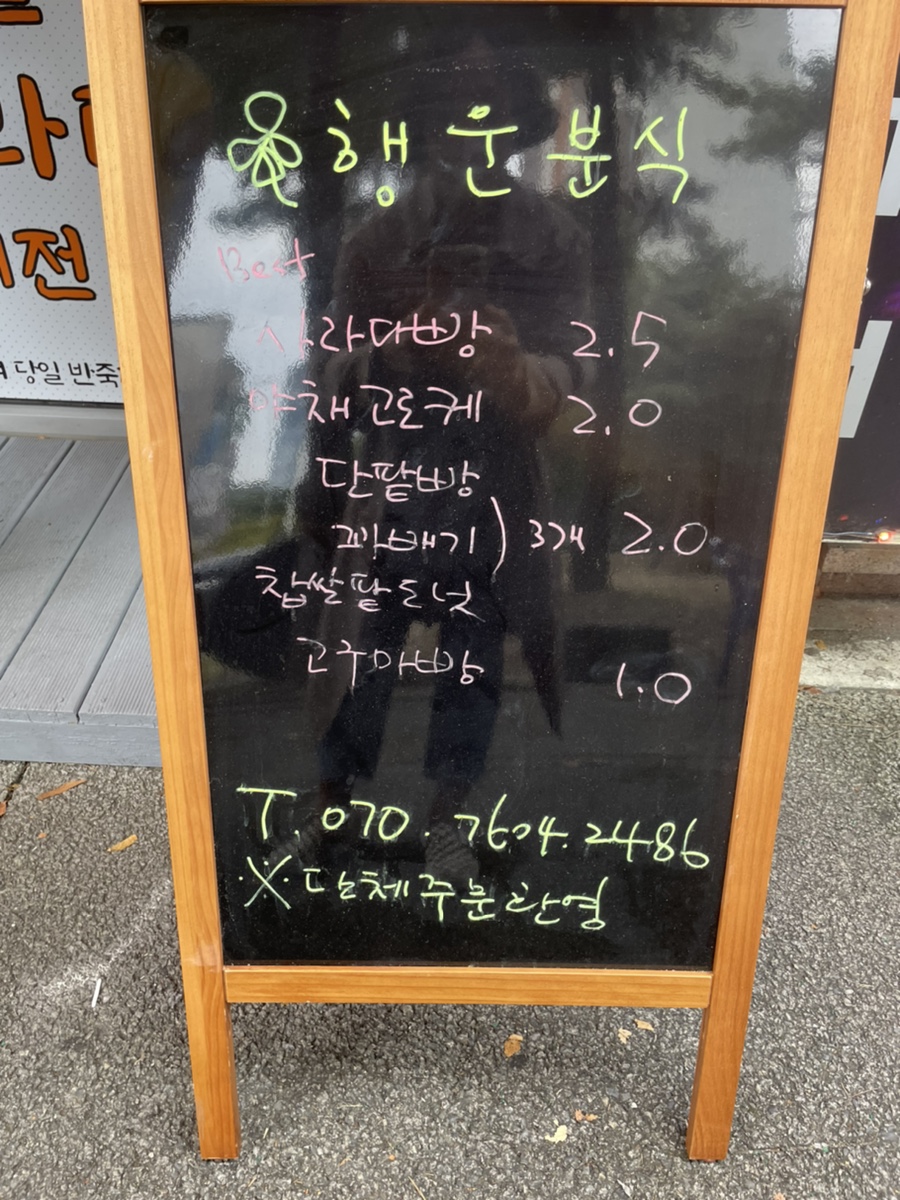 행운분식
Best
사라다빵 2.5
야채고로케 2.0
단팥빵
꽈배기 ) 3개 2.0
찹쌀팥도넛
고구마빵 1.0
T. 070. 7604. 2486
※ 단체주문환영
전
당일 반죽